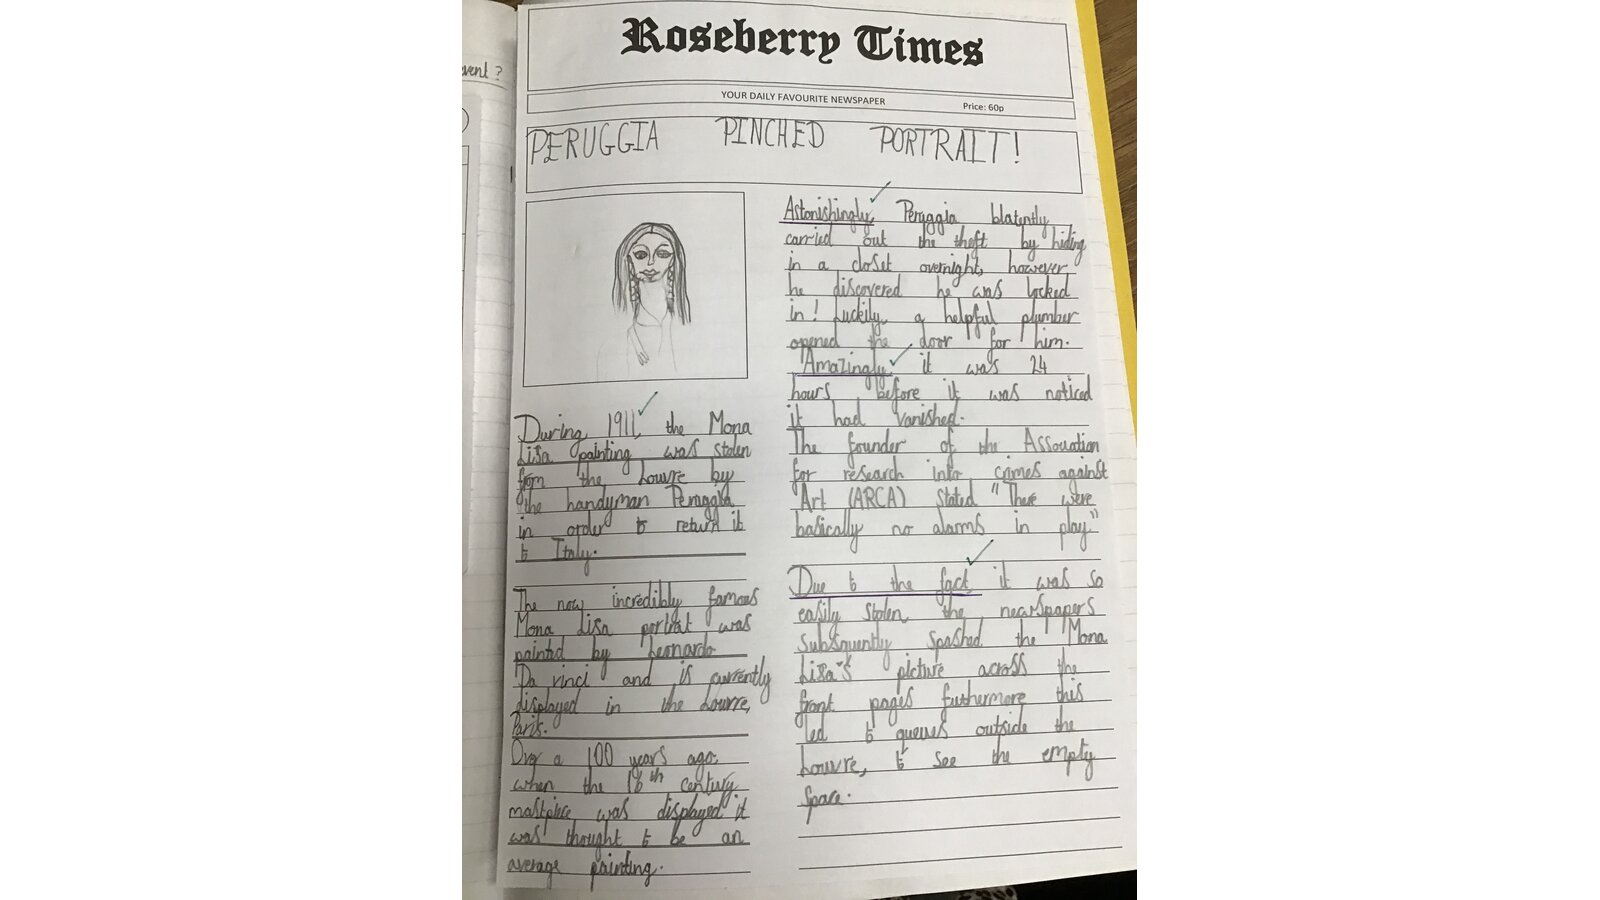 event?
Roseberry Times
YOUR DAILY FAVOURITE NEWSPAPER
Price: 60p
PERUGGIA PINCHED PORTRAIT!
During 1911, the Mona
Lisa painting was stolen
from the Louvre by
the handyman Peruggia
in order to return it
to Italy.
The now incredibly famous
Mona Lisa portrait was
painted by Leonardo
Da vinci and is currently
displayed in the Louvre,
Paris.
Over a 100 years ago,
when the 16th century
mastpiece was displayed it
was thought to be an
average painting.
Astonishingly, Peruggia blatently
carried out the theft by hiding
in a closet overnight, however,
he discovered he was locked
in! Luckily, a helpful plumber
opened the door for him.
Amazingly, it was 24
hours before it was noticed
it had vanished.
The founder of the Association
for research into crimes against
Art (ARCA) stated "There were
basically no alarms in play"
Due to the fact, it was so
easily stolen, the newspapers
subsquently spashed the Mona
Lisa's picture across the
front pages furthermore this
led to queues outside the
Louvre, to see the empty
space.